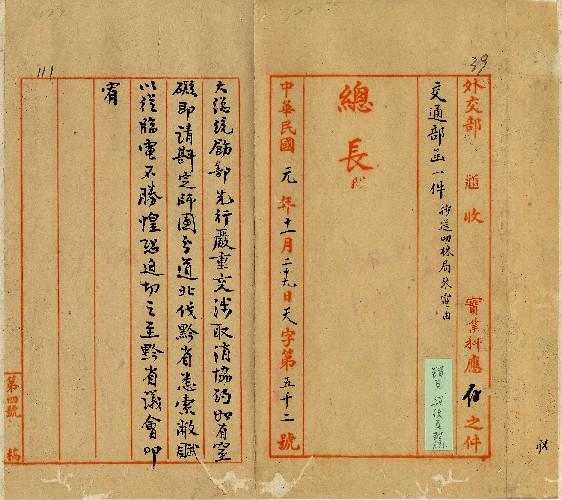 39
外交部 收 實業科應存之件
交通部函一件 抄送叻 局來電由
總長
中華民國元年十一月二十九日天字第五千二號
111
大總統飭部先行嚴重交涉取消協約如有窒
礙即請斟定師團分道北伐黔省悉索敝賦
以從臨電不勝惶恐迫切之至黔省議會叩
宥
第四號 稿